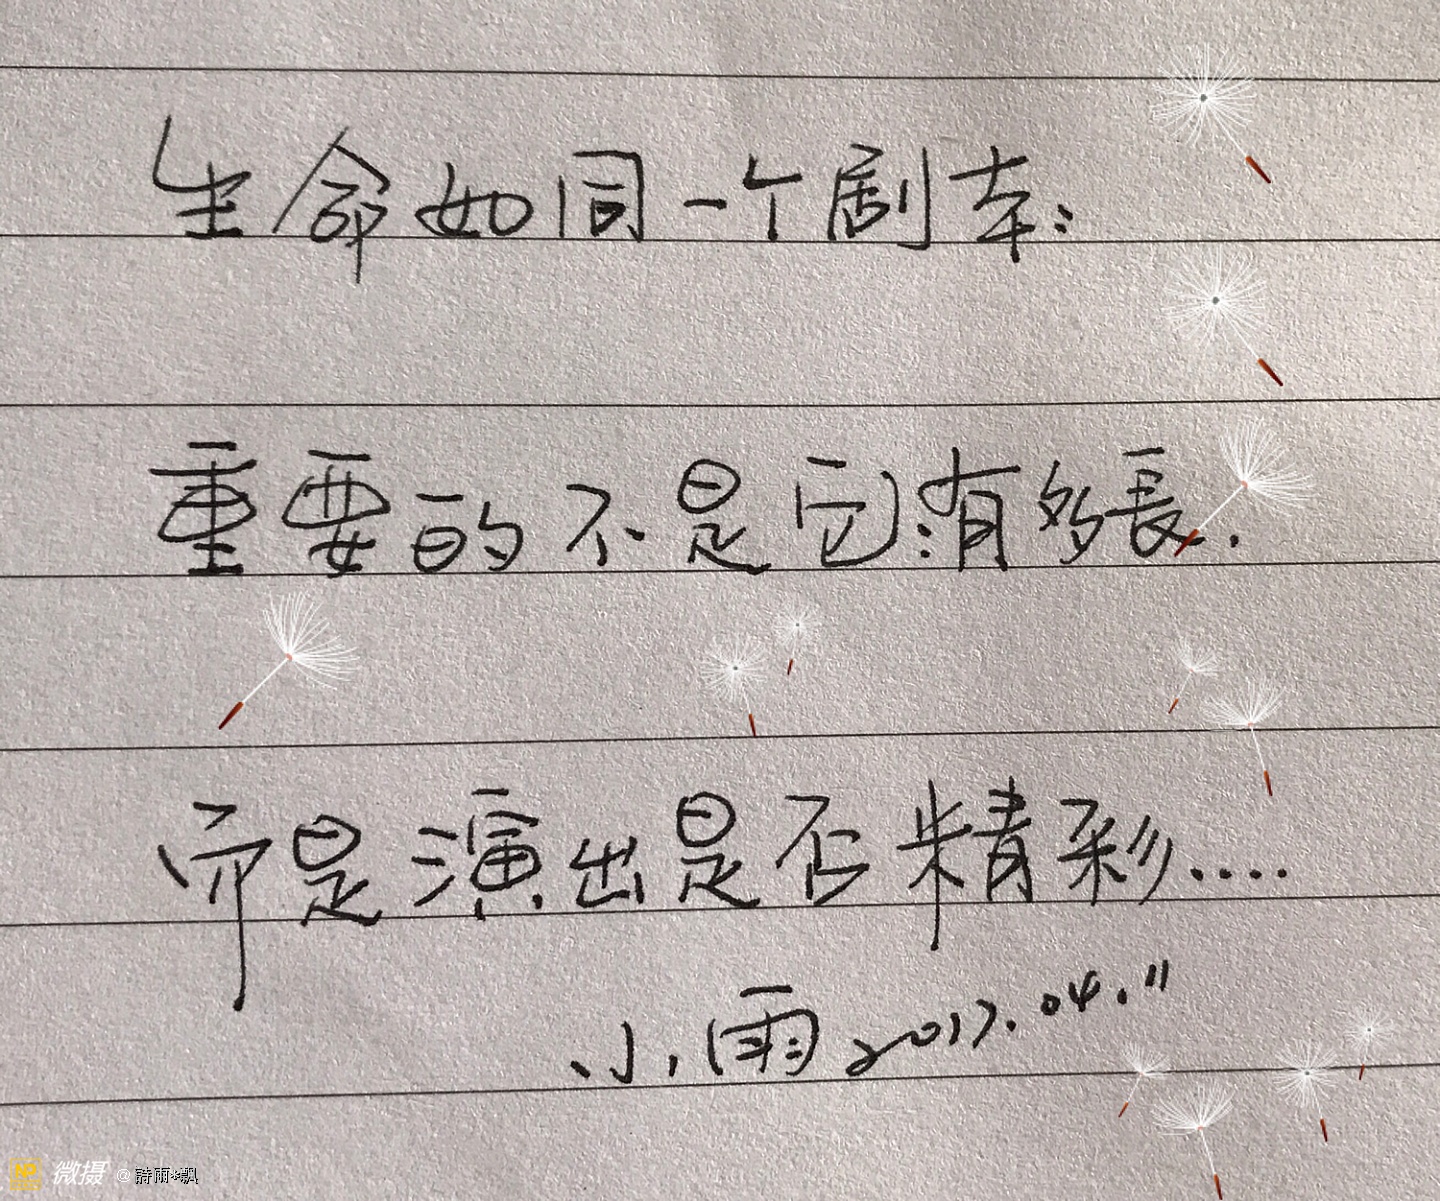 生命如同一个剧本:
重要的不是它有多長.
而是演出是否精彩....
小雨 2017.04.11
微摄 @詩雨飘